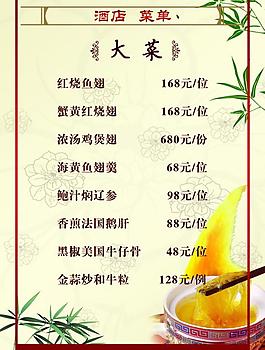 酒店 菜单
大菜
红烧鱼翅 168元/位
蟹黄红烧翅 168元/位
浓汤鸡煲翅 680元/份
海黄鱼翅羹 68元/位
鲍汁焖辽参 98元/位
香煎法国鹅肝 88元/位
黑椒美国牛仔骨 48元/位
金蒜炒和牛粒 128元/例